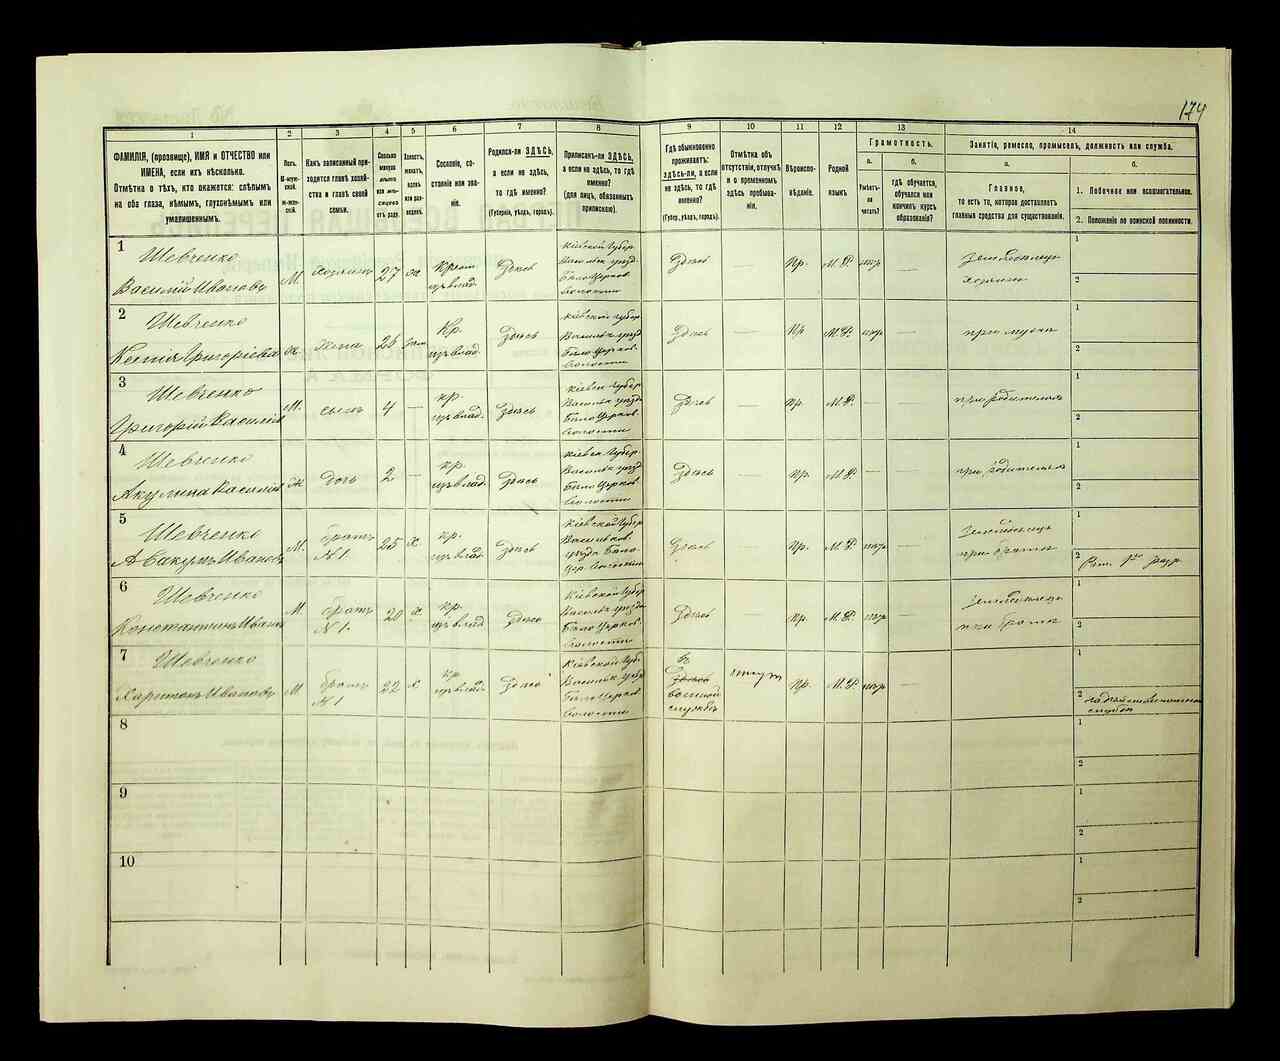 174
1
2
3
4
5
6
7
8
9
10
11
12
13
14
ФАМИЛІЯ, (прозвище), ИМЯ и ОТЧЕСТВО или
ИМЕНА, если ихъ нѣсколько.
Отмѣтка о тѣхъ, кто окажется: слѣпымъ
на оба глаза, нѣмымъ, глухонѣмымъ или
умалишеннымъ.
Полъ.
М-муж-
ской.
Ж-жен-
скій.
Какъ записанный при-
ходится главѣ хозяй-
ства и главѣ своей
семьи.
Сколько
минуло
лѣтъ
или мѣ-
сяцевъ
отъ роду.
Холостъ,
женатъ,
вдовъ
или раз-
веденъ.
Сословіе, со-
стояніе или зва-
ніе.
Родился-ли ЗДѢСЬ,
а если не здѣсь,
то гдѣ именно?
(Губернія, уѣздъ, городъ).
Приписанъ-ли ЗДѢСЬ,
а если не здѣсь, то гдѣ
именно?
(для лицъ, обязанныхъ
припискою).
Гдѣ обыкновенно
проживаетъ:
здѣсь-ли, а если
не здѣсь, то гдѣ
именно?
(Губер., уѣздъ, городъ).
Отмѣтка объ
отсутствіи, отлучкѣ
и о временномъ
здѣсь пребыва-
ніи.
Вѣроиспо-
вѣданіе.
Родной
языкъ.
Грамотность.
а.
Умѣетъ-
ли
читать?
б.
гдѣ обучается,
обучался или
кончилъ курсъ
образованія?
Занятіе, ремесло, промыселъ, должность или служба.
а.
Главное,
то есть то, которое доставляетъ
главныя средства для существованія.
б.
1. Побочное или вспомогательное.
2. Положеніе по воинской повинности.
1
Шевченко
Василій Ивановъ
М.
хозяинъ
27
ж
Крест.
изъ влад.
Здѣсь
Кіевской Губер.
Васильк. уѣзд.
Бѣло Церков.
волости
Здѣсь
—
Пр.
М.Р.
—
хозяинъ
1
2
2
Шевченко
Ксенія Григоріева
ж
жена
26
зам.
Кр.
изъ влад.
Здѣсь
Кіевской Губер.
Васильк. уѣзд.
Бѣло Церков.
волости
Здѣсь
—
Пр
М.Р.
—
при мужѣ
1
2
3
Шевченко
Григорій Василіев
М.
сынъ
4
—
кр.
изъ влад.
Здѣсь
Кіевск. Губер.
Васильк. уѣзд.
Бѣло Церков.
волости
Здѣсь
—
Пр.
М.Р.
—
—
при родителяхъ
1
2
4
Шевченко
Акулина Василіев
ж
дочь
2
—
кр.
изъ влад.
Здѣсь
Кіевск. Губер.
Васильк. уѣзд.
Бѣло Церков.
волости
Здѣсь
—
Пр.
М.Р.
—
—
при родителяхъ
1
2
5
Шевченко
Аввакумъ Ивановъ
М.
братъ
N 1.
25
х
кр.
изъ влад.
Здѣсь
Кіевской Губер.
Васильков.
уѣзда Бѣло-
цер. волости
Здѣсь
—
Пр.
М.Р.
—
при братѣ
1
2
6
Шевченко
Константинъ Иванов
М
братъ
N 1.
20
х
кр.
изъ влад.
Здѣсь
Кіевской Губер.
Васильк. уѣзда
Бѣло Церков.
волости
Здѣсь
—
Пр.
М.Р.
—
при братѣ
1
2
7
Шевченко
Харитонъ Ивановъ
М.
братъ
N 1
22
х
кр.
изъ влад.
Здѣсь
Кіевской Губер.
Васильк. уѣзд.
Бѣло Церков.
волости
въ
Здѣсь
военной
службѣ
Пр.
М.Р.
—
1
2
службѣ
8
1
2
9
1
2
10
1
2